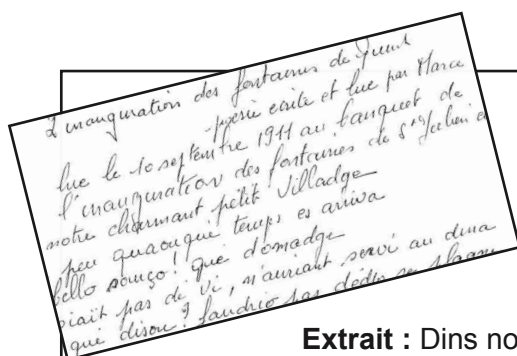 L'inauguration des fontaines de Quint
poésie écrite et lue par Marce
lue le 10 septembre 1911 au banquet de
l'inauguration des fontaines de St Julien e
notre charmant petit Villadge
peu quaouqué temps es arriva
bello sourço! qué domadge
iait pas de vi, n'auriant servi au dina
qué disou? faudrio pas dédre se
Extrait : Dins no